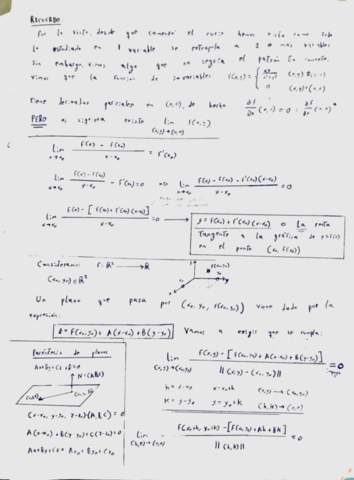 RECUERDO
Por lo visto, desde que comenzó el curso hemos visto como todo
lo estudiado en 1 variable se extrapola a 2 o más variables.
Sin embargo, vimos algo que no seguía el patrón. En concreto,
vimos que la función de 2 variables: f(x,y) =
0 (x,y)=(0,0)
tiene derivadas parciales en (0,0), de hecho ∂f/∂x (0,0) = 0 = ∂f/∂y (0,0)
PERO ni siquiera existe lim (x,y)→(0,0) f(x,y)
lim x→x₀ (f(x) - f(x₀))/(x-x₀) = f'(x₀)
lim x→x₀ (f(x)-f(x₀))/(x-x₀) - f'(x₀) = 0 ⇒ lim x→x₀ (f(x) - f(x₀) - f'(x₀)(x-x₀))/(x-x₀) = 0
lim x→x₀ (f(x) - [f(x₀)+f'(x₀)(x-x₀)])/(x-x₀) = 0 → y = f(x₀) + f'(x₀)(x-x₀) es la recta
tangente a la gráfica de y=f(x)
en el punto (x₀, f(x₀))
Consideramos f: ℝ² → ℝ
(x₀,y₀) ∈ ℝ²
Un plano que pasa por (x₀, y₀, f(x₀,y₀)) viene dado por la
expresión:
z = f(x₀,y₀) + A(x-x₀) + B(y-y₀) Vamos a exigir que se cumpla:
de planos
Ax+By+Cz+D=0
N=(A,B,C)
(x-x₀, y-y₀, z-z₀)·(A,B,C) = 0
A(x-x₀) + B(y-y₀) + C(z-z₀) = 0
Ax+By+Cz = Ax₀ + By₀ + Cz₀
lim (x,y)→(x₀,y₀) (f(x,y) - [f(x₀,y₀) + A(x-x₀) + B(y-y₀)])/||(x,y) - (x₀,y₀)|| = 0
h = x-x₀ x = x₀+h (x,y) → (x₀,y₀)
k = y-y₀ y = y₀+k (h,k) → (0,0)
lim (h,k)→(0,0) (f(x₀+h, y₀+k) - [f(x₀,y₀) + Ah + Bk])/||(h,k)|| = 0